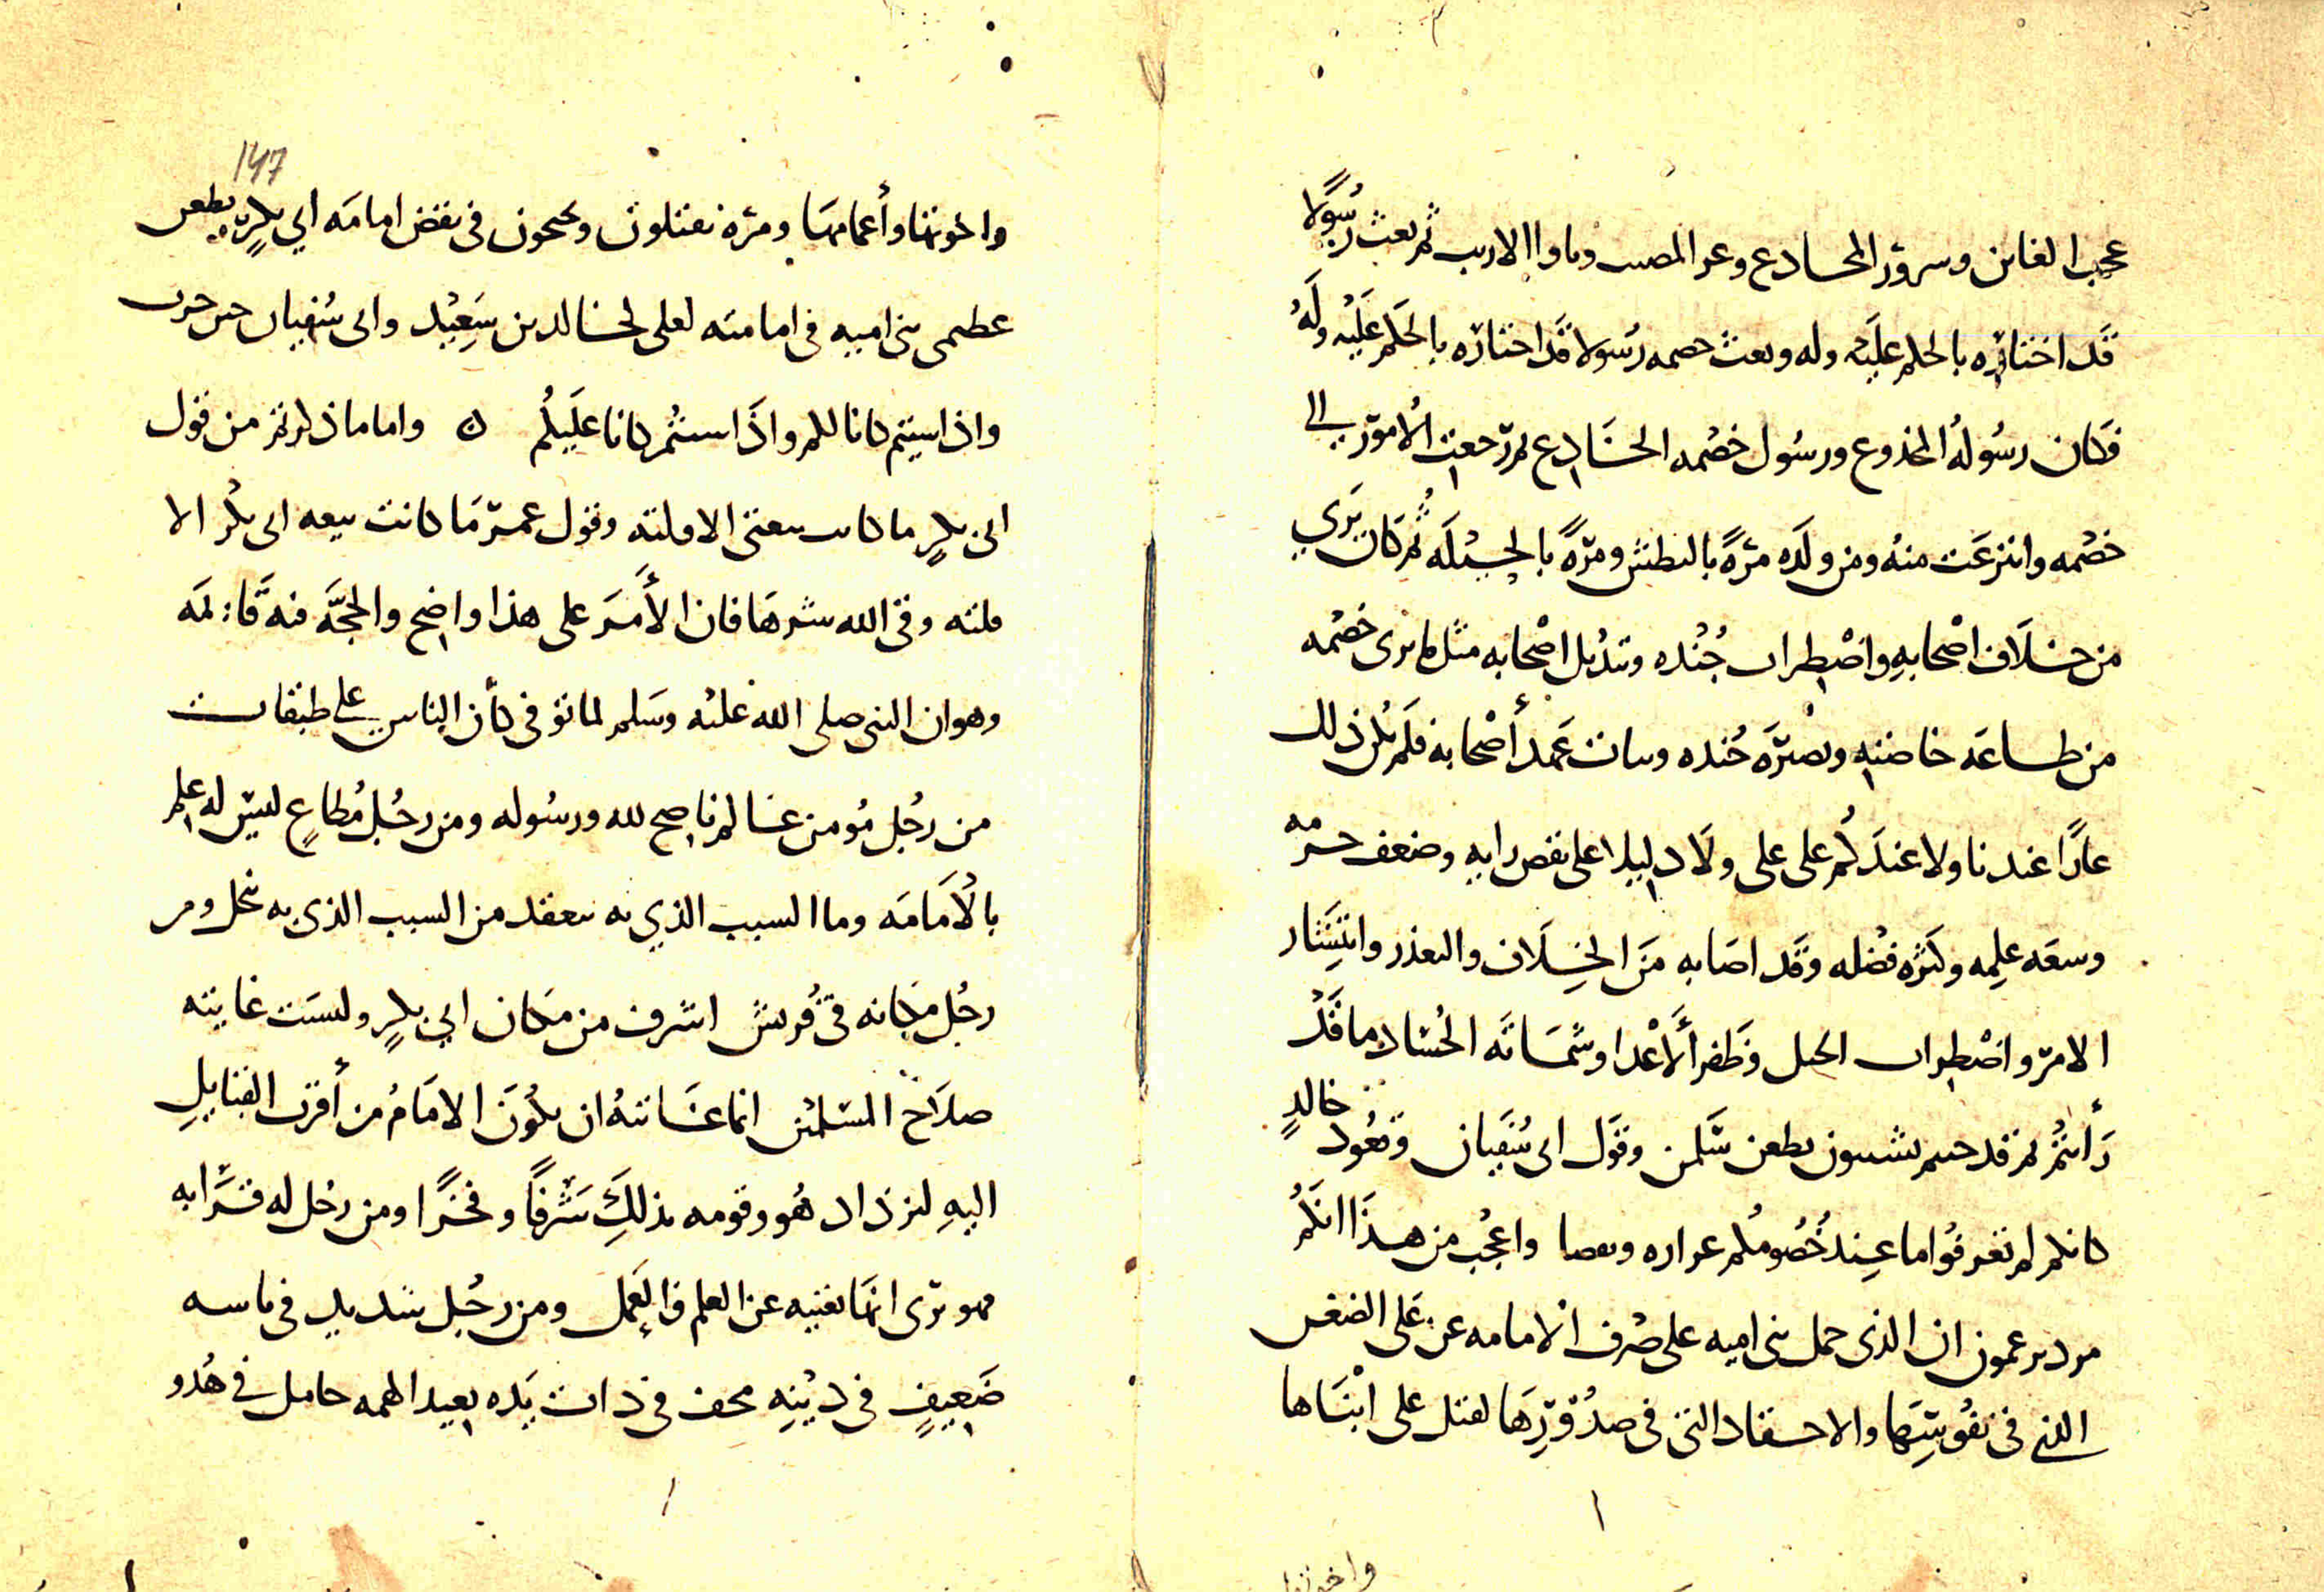 عجب الغابن وسرور المخادع وعز المصيب وباوا الاريب ثم بعث رسولا
قد اختاره بالحكم عليه وله وبعث خصمه رسولا قد اختاره بالحكم عليه وله
فكان رسوله المخدوع ورسول خصمه الخادع ثم رجعت الامور الى
خصمه وانتزعت منه ومن ولده مرة بالبطش ومرة بالحيلة ثم كان يرى
من خلاف اصحابه واضطراب جنده وتبديل اصحابه مثل ما يرى خصمه
من طاعة خاصته ونصرة جنده وثبات عهد أصحابه فلم يكن ذلك
عارا عندنا ولا عندكم على علي ولا دليلا على نقص رايه وضعف حزمه
وسعة علمه وكثرة فضله وقد اصابه من الخلاف والغدر وانتشار
الامر واضطراب الحبل وظفر الأعدا وشماتة الحساد ما قد
رأيتم ثم قد جيتم تشبثون بطعن سلمن وقول ابي سفيان وقعود خالد
كانكم لم تعرفوا ما عند خصومكم واعجب من هذا انكم
تزعمون ان الذي حمل بني امية على صرف الامامة عن علي الضغن
الذي في نفوسها والاحقاد التي في صدورها لقتل علي ابناها
واخوتها وأعمامها ومرة تقبلون وتحتجون في نقض امامة ابي بكر بطعن
عظمى بني امية في امامته لعلي لخالد بن سعيد وابي سفيان حرب
واذا شيتم كانا لكم واذا شيتم كانا عليكم ٥ واما ما ذكرتم من قول
ابي بكر ما كانت بيعتي الا فلتة وقول عمر ما كانت بيعة ابي بكر الا
فلتة وقى الله شرها فان الأمر على هذا واضح والحجة فيه قائمة
وهو ان النبي صلى الله عليه وسلم لما توفى كأن الناس على طبقات
من رجل مؤمن عالم ناصح لله ورسوله ومن رجل مطاع ليس له علم
بالامامة وما السبب الذي به تنعقد من السبب الذي به تنحل ومن
رجل مكانه في قريش اشرف من مكان ابي بكر وليست غايته
صلاح المسلمين انما غايته ان يكون الامام من أقرب القبايل
اليه ليزداد هو وقومه بذلك شرفا وفخرا ومن رجل له قرابة
فهو يرى انها تغنيه عن العلم والعمل ومن رجل شديد في باسه
ضعيف في دينه مخف في ذات يده بعيد الهمه خامل في هدو
واخوتها
147